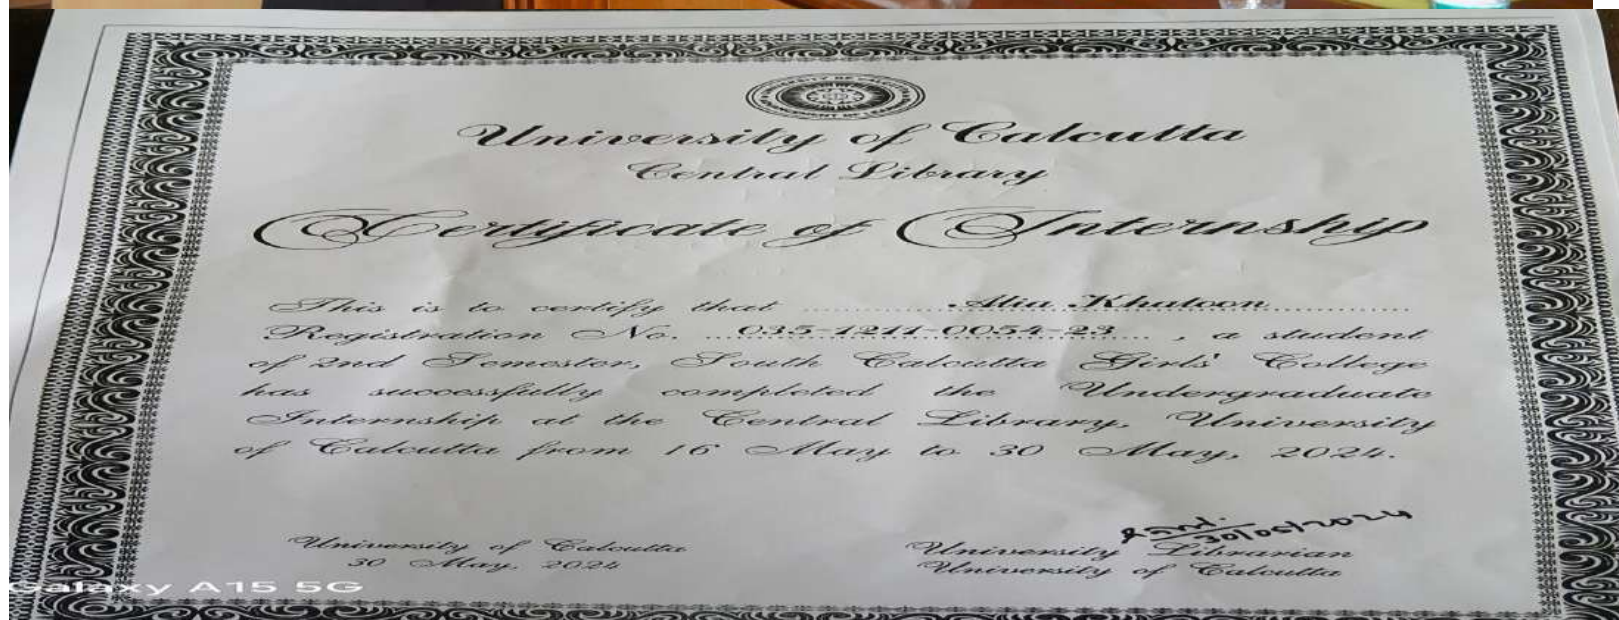 University of Calcutta
Central Library
Certificate of Internship
This is to certify that .................. Alia Khatoon ..................
Registration No. ...035-1211-0054-23..., a student
of 2nd Semester, South Calcutta Girls' College
has successfully completed the Undergraduate
Internship at the Central Library, University
of Calcutta from 16 May to 30 May, 2024.
30/05/2024
University of Calcutta
30 May, 2024
University Librarian
University of Calcutta
Galaxy A15 5G